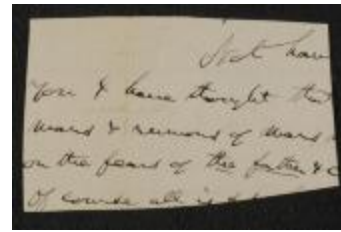 Not hav
you & have thought that
ward & removal of ward
on the fears of the father & c
of course all is